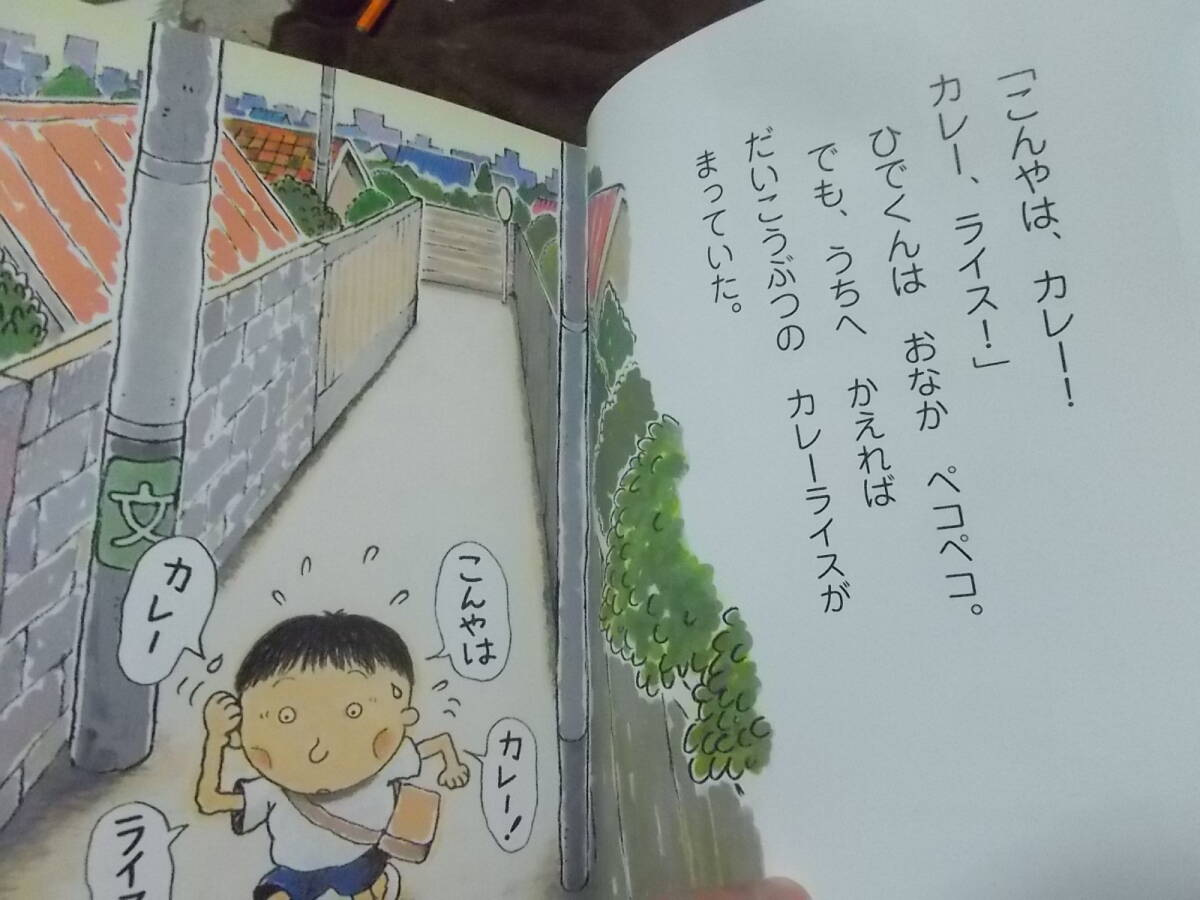 「こんやは、カレー!
カレー、ライス!」
ひでくんは おなか ペコペコ。
でも、うちへ かえれば
だいこうぶつの カレーライスが
まっていた。
こんやは
カレー!
カレー
ライ
文